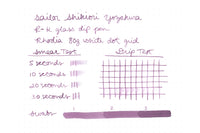 Sailor Shikiori Yozakura
R-H glass dip pen
Rhodia 80g white dot grid
Smear Test Drip Test
5 seconds
10 seconds
20 seconds
30 seconds
1 2 3
Swab